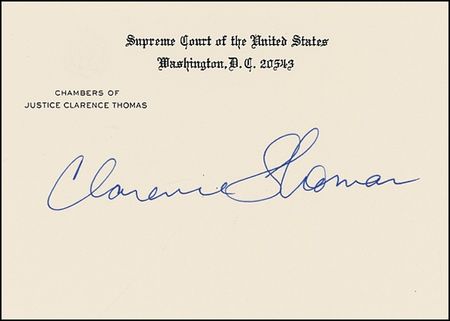 Supreme Court of the United States
Washington, D.C. 20543
CHAMBERS OF
JUSTICE CLARENCE THOMAS
Clarence Thomas